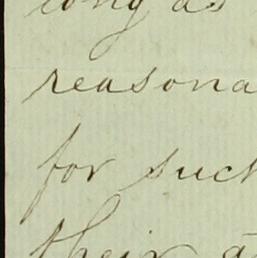 long as
reasona
for such
their a